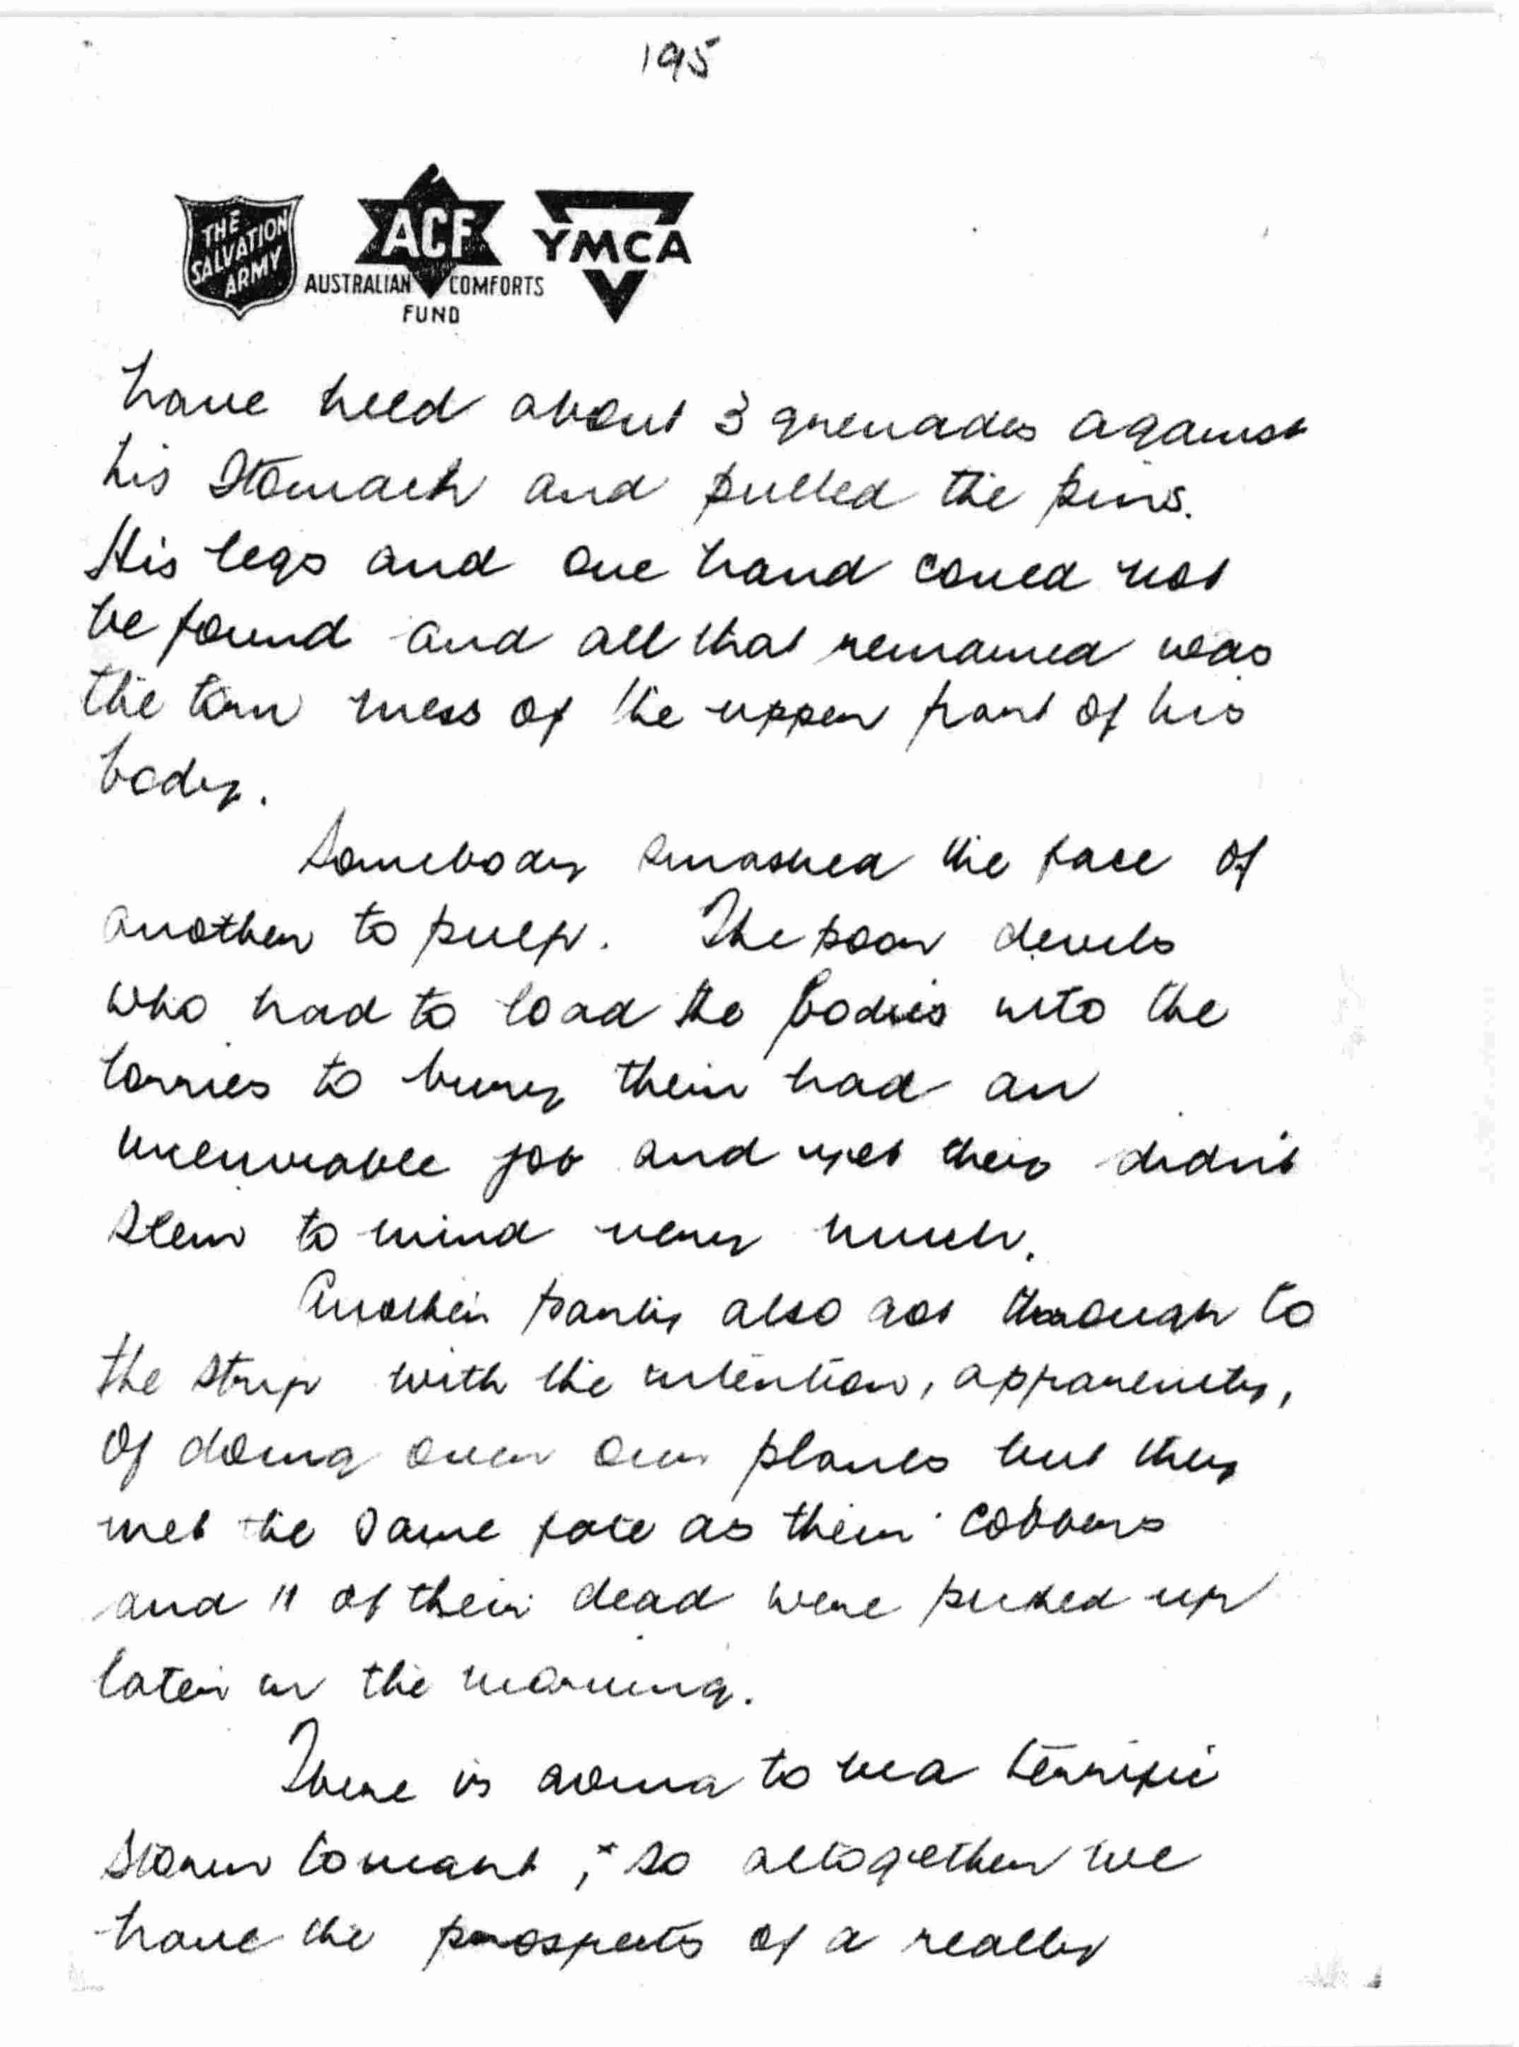 195
THE SALVATION ARMY
ACF
AUSTRALIAN COMFORTS FUND
YMCA
have held about 3 grenades against
his stomach and pulled the pins.
His legs and one hand could not
be found and all that remained was
the torn mess of the upper part of his
body.
Somebody smashed the face of
another to pulp. The poor devils
who had to load the bodies into the
lorries to bury them had an
unenviable job and yet they didn't
seem to mind very much.
Another party also got through to
the strip with the intention, apparently,
of doing over our planes but they
met the same fate as their cobbers
and 11 of their dead were picked up
later in the morning.
There is going to be a terrific
storm tonight, so altogether we
have the prospects of a really